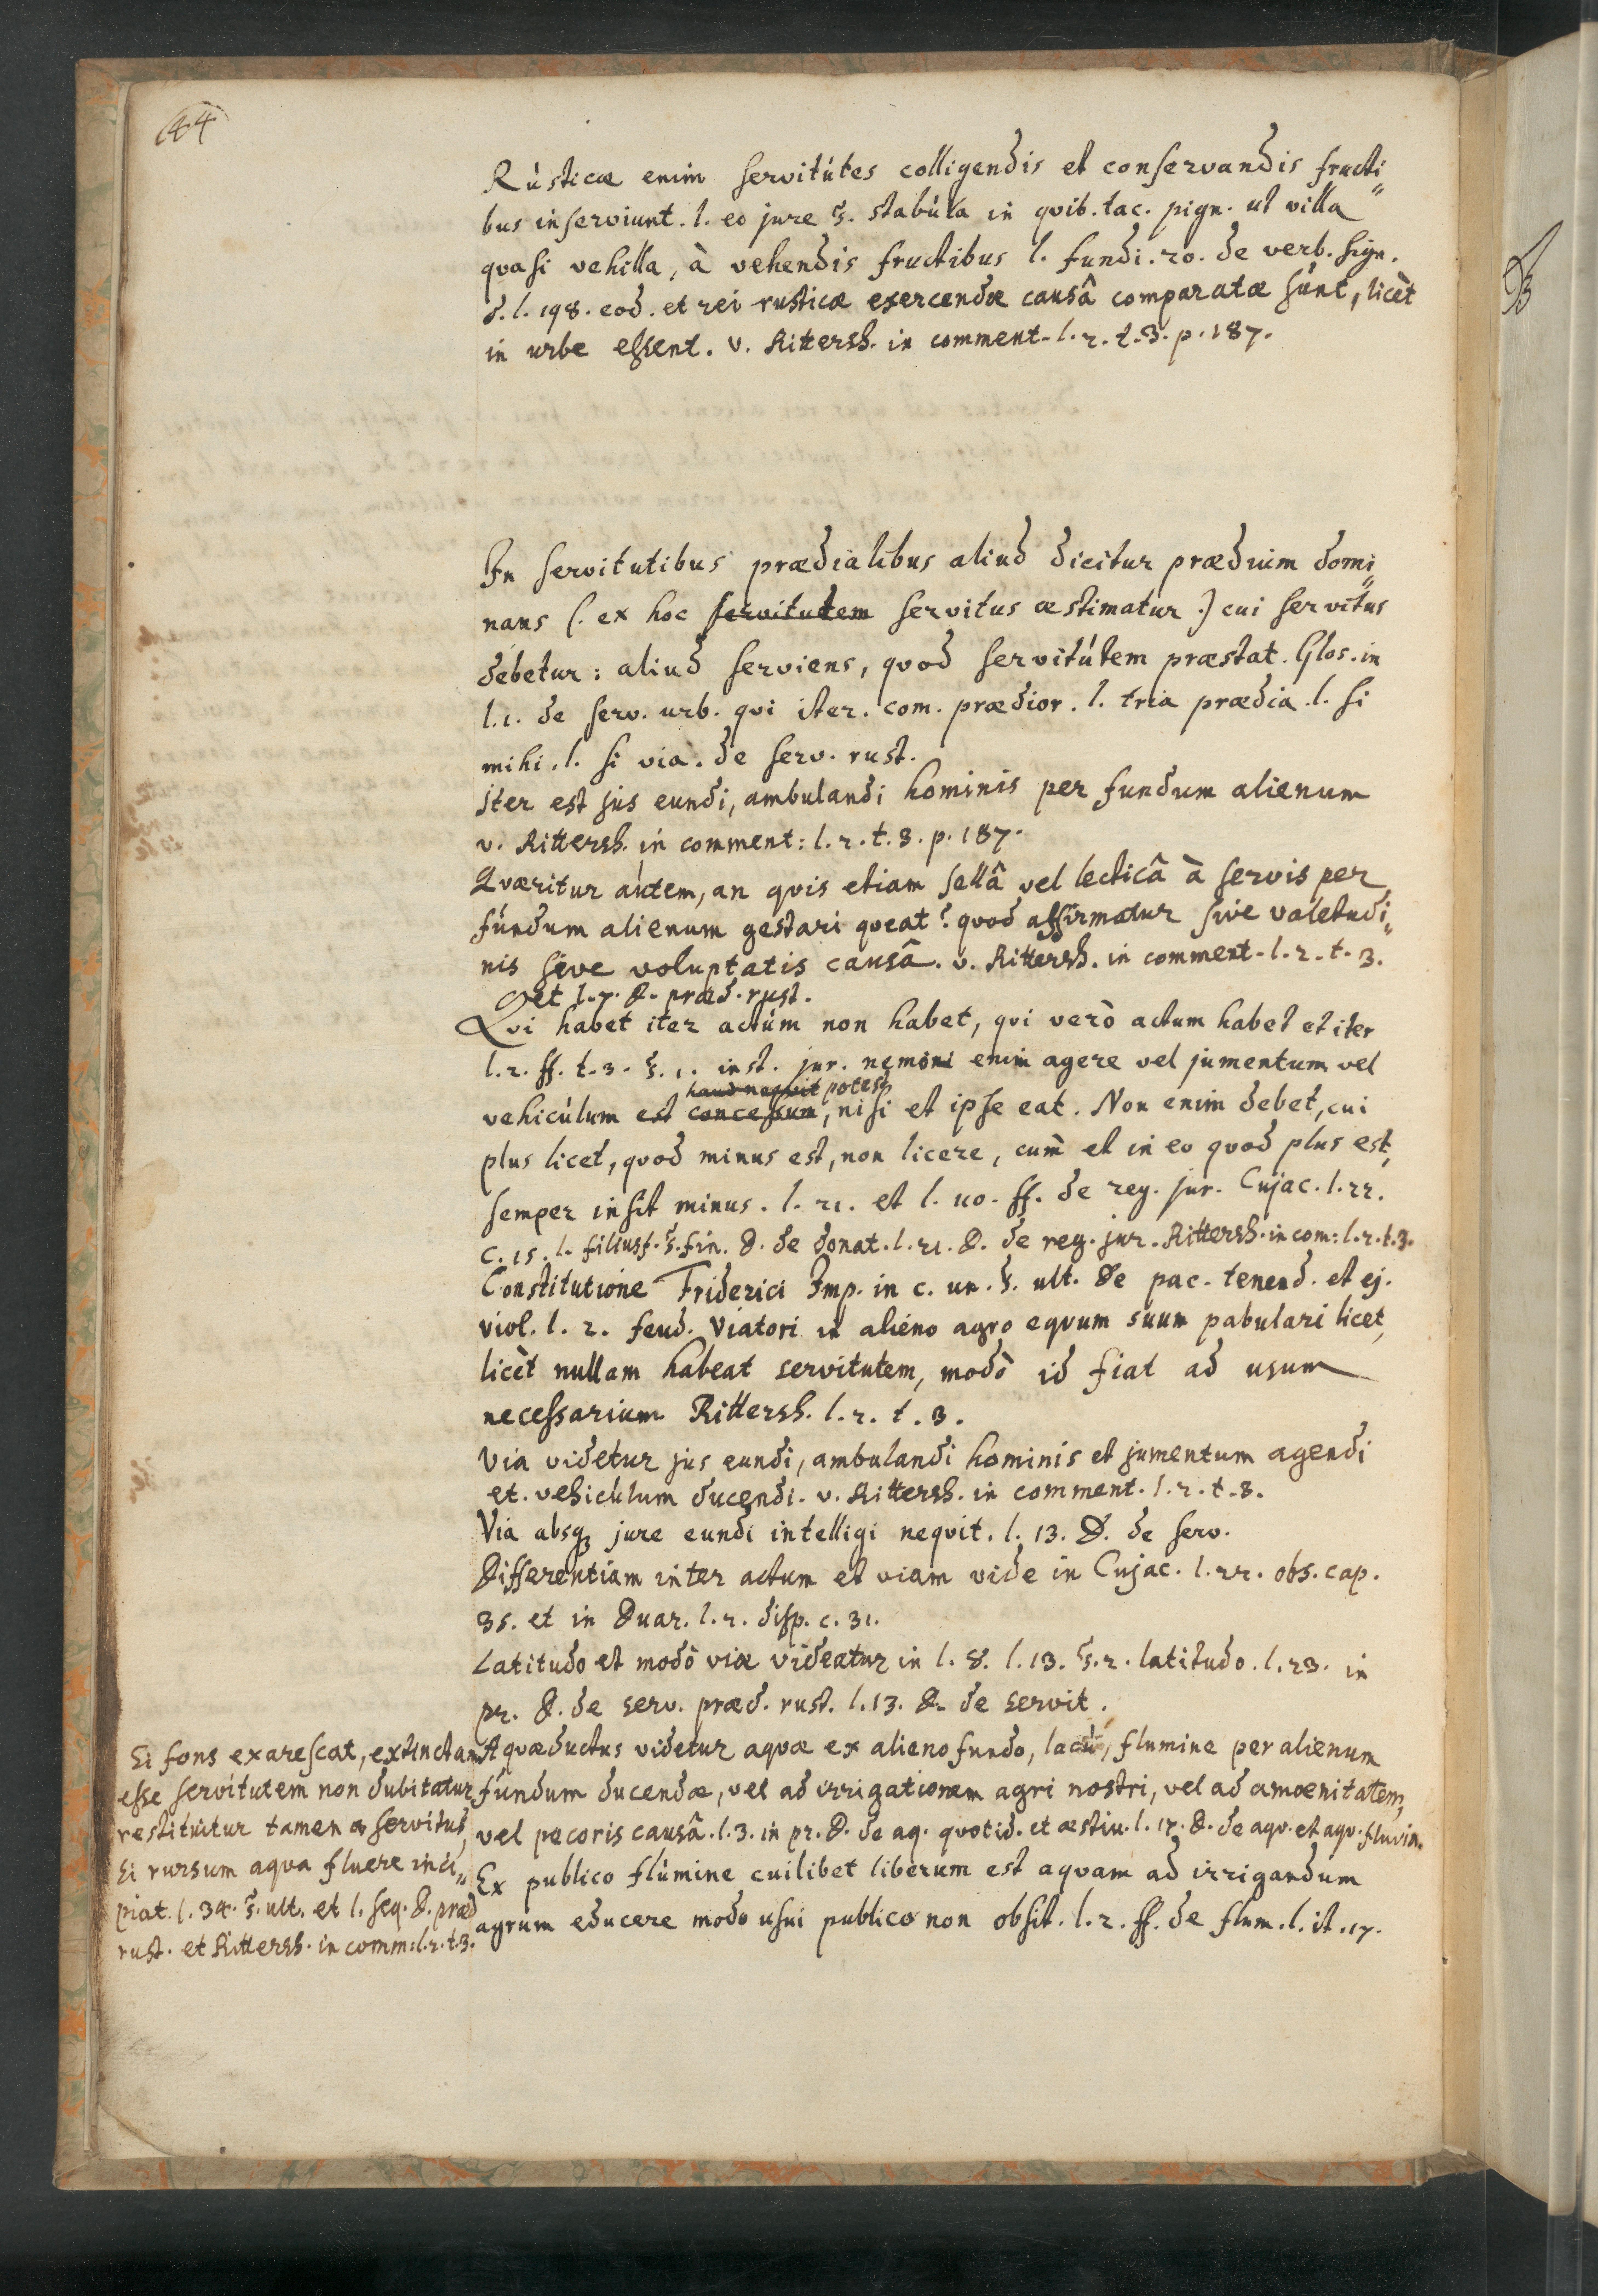 44
Rústicæ enim servitútes colligendis et conservandis fructi„
bus inserviunt. l. eo jure §. stabúla in qvib. tac. pign. ut villa
quasi vehilla, à vehendis fructibus l. fundi. 20. de verb. sign.
d. l. 198. eod. et rei rusticæ exercendæ causâ comparatæ súnt, licèt
in urbe essent. v. Rittersh. in comment. l. 2. t. 3. p. 187.
In servitutibus prædialibus aliud dicitur prædium domi„
nans (. ex hoc servitutem servitus æstimatur .) cui servitus
debetur: aliud serviens, quod servitútem præstat. Glos. in
l. 1. de serv. urb. qvi iter. com. prædior. l. tria prædia. l. si
mihi. l. si via. de serv. rust.
Iter est jus eundi, ambulandi hominis per fundum alienum
v. Rittersh. in comment: l. 2. t. 3. p. 187.
Qværitur aútem, an qvis etiam sellâ vel lecticâ à servis per
fúndum alienum gestari qveat? qvod affirmatur sive valetudi„
nis sive voluptatis causâ. v. Rittersh. in comment. l. 2. t. 3.
et l. 7. D. præd. rust.
Qvi habet iter actúm non habet, qvi verò actum habet et iter
l. 2. ff. t. 3. §. 1. inst. jur. nemoni enim agere vel jumentum vel
haud neqvit potest
vehicúlum est concessum, nisi et ipse eat. Non enim debet, cui
plus licet, quod minus est, non licere, cum̀ et in eo quod plus est,
semper insit minus. l. 21. et l. 110. ff. de reg. jur. Cujac. l. 22.
c. 15. l. filiusf. §. fin. D. de donat. l. 21. D. de reg. jur. Rittersh. in com: l. 2. t. 3.
Constitutione Friderici Imp. in c. un. §. ult. De pac. tenend. et ej.
viol. l. 2. feud. Viatori in alieno agro eqvum suum pabulari licet,
licèt nullam habeat servitutem, modò id fiat ad usum
necessarium Rittersh. l. 2. t. 3.
Via videtur jus eundi, ambulandi hominis et jumentum agendi
et. vehicúlum ducendi. v. Rittersh. in comment. l. 2. t. 3.
Via absq; jure eundi intelligi neqvit. l. 13. D. de serv.
Differentiam inter actum et viam vide in Cujac. l. 22. obs. cap.
35. et in Duar. l. 2. disp. c. 31.
Latitudo et modò viæ videatur in l. 8. l. 13. §. 2. latitudo. l. 23. in
pr. D. de serv. præd. rust. l. 13. D. de servit.
Aqvæductus videtur aqvæ ex alieno fundo, lacú, flumine per alienum
fúndum ducendæ, vel ad irrigationem agri nostri, vel ad amœnitatem,
vel pecoris causâ. l. 3. in pr. D. de aq. quotid. et æstiv. l. 17. D. de aqv. et aqv. fluvia.
Ex publico flúmine cuilibet liberum est aqvam ad irrigandum
agrum educere modo usui publico non obsit. l. 2. ff. de flum. l. it. 17.
Si fons exarescat, extinctam
esse servitutem non dubitatur
restituitur tamen servitus,
si rursum aqva fluere inci„
piat. l. 34. §. ult. et l. seq. D. præd
rust. et Rittersh. in comm: l. 2. t. 3.